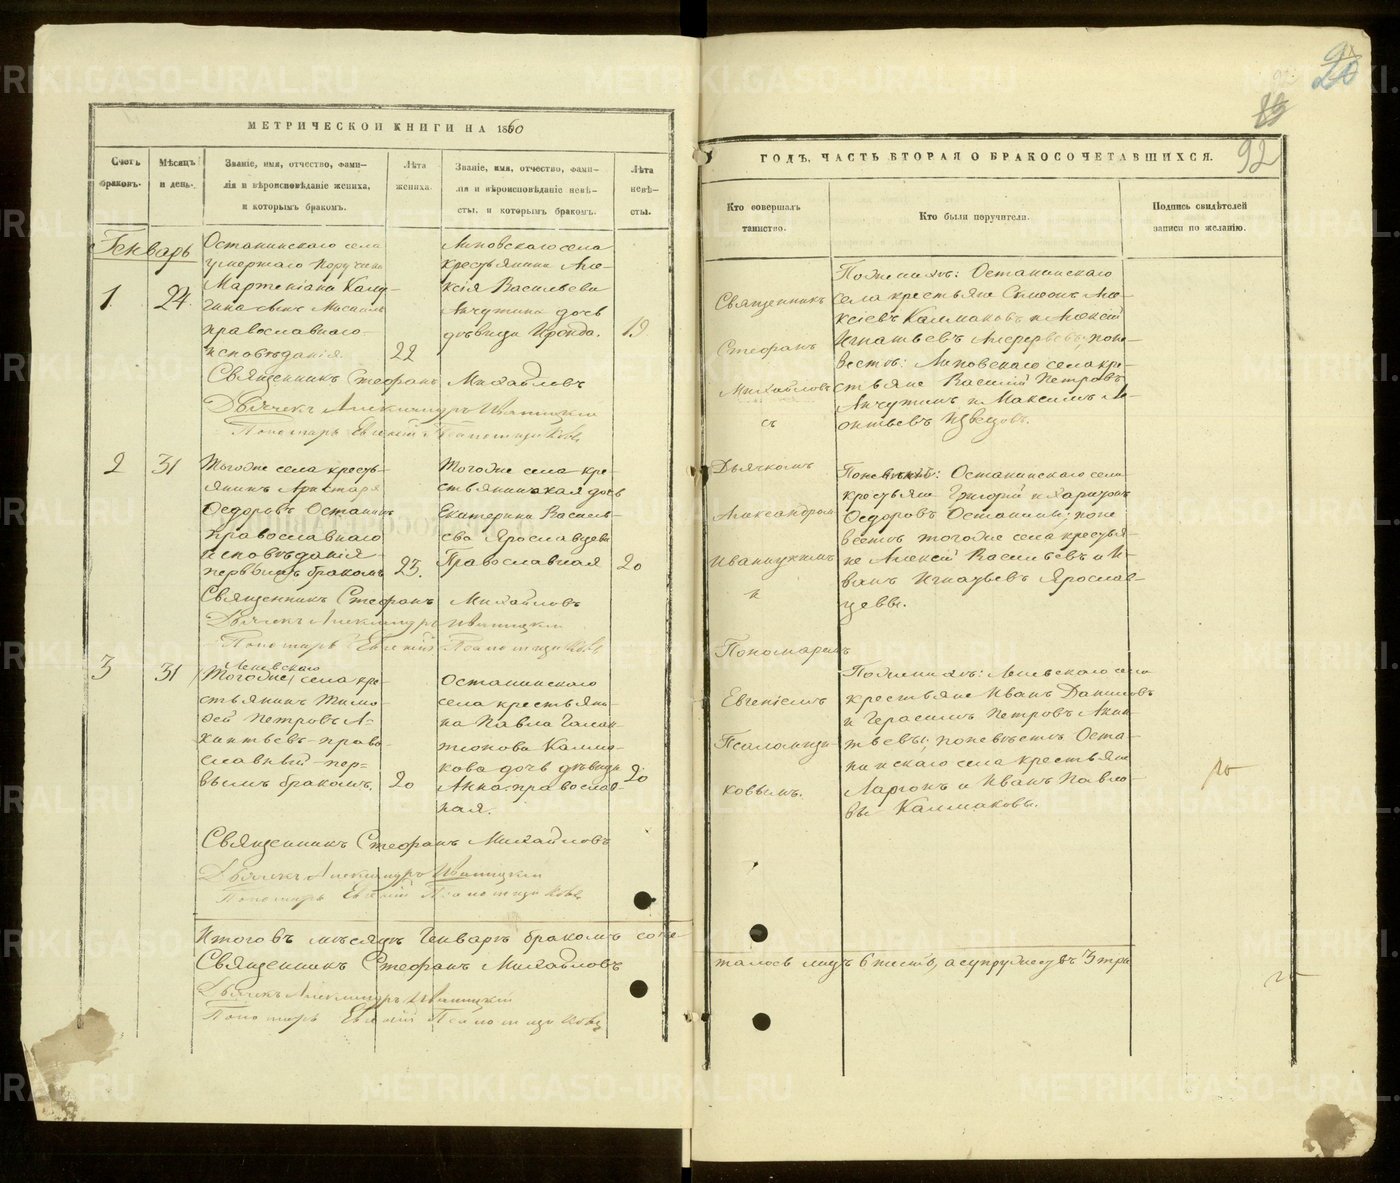 МЕТРИЧЕСКОЙ КНИГИ НА 1860
Счетъ браковъ.
Мѣсяцъ и день.
Званіе, имя, отчество, фами-
лія и вѣроисповѣданіе жениха,
и которымъ бракомъ.
Лѣта
жениха.
Званіе, имя, отчество, фами-
лія и вѣроисповѣданіе невѣ-
сты, и которымъ бракомъ.
Лѣта
невѣ-
сты.
Генварь
1
24.
Останинскаго села
умершаго
Мартиніана
сынъ
православнаго
исповѣданія.
22
Липовскаго села
крестьянина Але-
ксія Васильева
Анчутина дочь
дѣвица
19
Священникъ Стефанъ Михайловъ
Дьячекъ Александръ Иваницкій
Пономарь Евгеній Псаломщиковъ
2
31
Тогоже села кресть-
янинъ Аристархъ
Ѳедоровъ Останинъ
православнаго
исповѣданія
первымъ бракомъ
23.
Тогоже села кре-
стьянинская дочь
Екатерина Василь-
ева Ярославцева
Православная
20
Священникъ Стефанъ Михайловъ
Дьячекъ Александръ Иваницкій
Пономарь Евгеній Псаломщиковъ
3
31
Леневскаго
Тогоже села кре-
стьянинъ Тимо-
ѳей Петровъ А-
кинтьевъ право-
славный пер-
вымъ бракомъ.
20
Останинскаго
села крестьяни-
на Павла Галак-
тіонова Калма-
кова дочь дѣвица
Анна православ-
ная.
20
Священникъ Стефанъ Михайловъ
Дьячекъ Александръ Иваницкій
Пономарь Евгеній Псаломщиковъ
Итого въ мѣсяцѣ Генварѣ бракомъ соче-
Священникъ Стефанъ Михайловъ
Дьячекъ Александръ Иваницкій
Пономарь Евгеній Псаломщиковъ
20
89
92
ГОДЪ, ЧАСТЬ ВТОРАЯ О БРАКОСОЧЕТАВШИХСЯ.
Кто совершалъ
таинство.
Кто были поручители.
Подпись свидѣтелей
записи по желанію.
Священникъ
Стефанъ
Михайловъ
съ
Дьячкомъ
Александромъ
Иваницкимъ
и
Пономаремъ
Евгеніемъ
Псаломщи-
ковымъ.
По женихѣ: Останинскаго
села крестьяне Симеонъ Але-
ксіевъ Калмаковъ и Алексій
Игнатьевъ по не-
вѣстѣ: Липовскаго села кре-
стьяне Василій Петровъ
Анчутинъ и Максимъ Ле-
онтьевъ
По женихѣ: Останинскаго села
крестьяне Григорій и Харитонъ
Ѳедоровы Останины; по не-
вѣстѣ тогоже села крестья-
не Алексій Васильевъ и И-
ванъ Игнатьевъ Ярослав-
цевы.
По женихѣ: Леневскаго села
крестьяне Иванъ Даниловъ
и Герасимъ Петровъ Акин-
тьевы; по невѣстѣ Оста-
нинскаго села крестьяне
Ларіонъ и Иванъ Павло-
вы Калмаковы.
талось лицъ 6 шесть, а супружествъ 3 три
METRIKI.GASO-URAL.RU